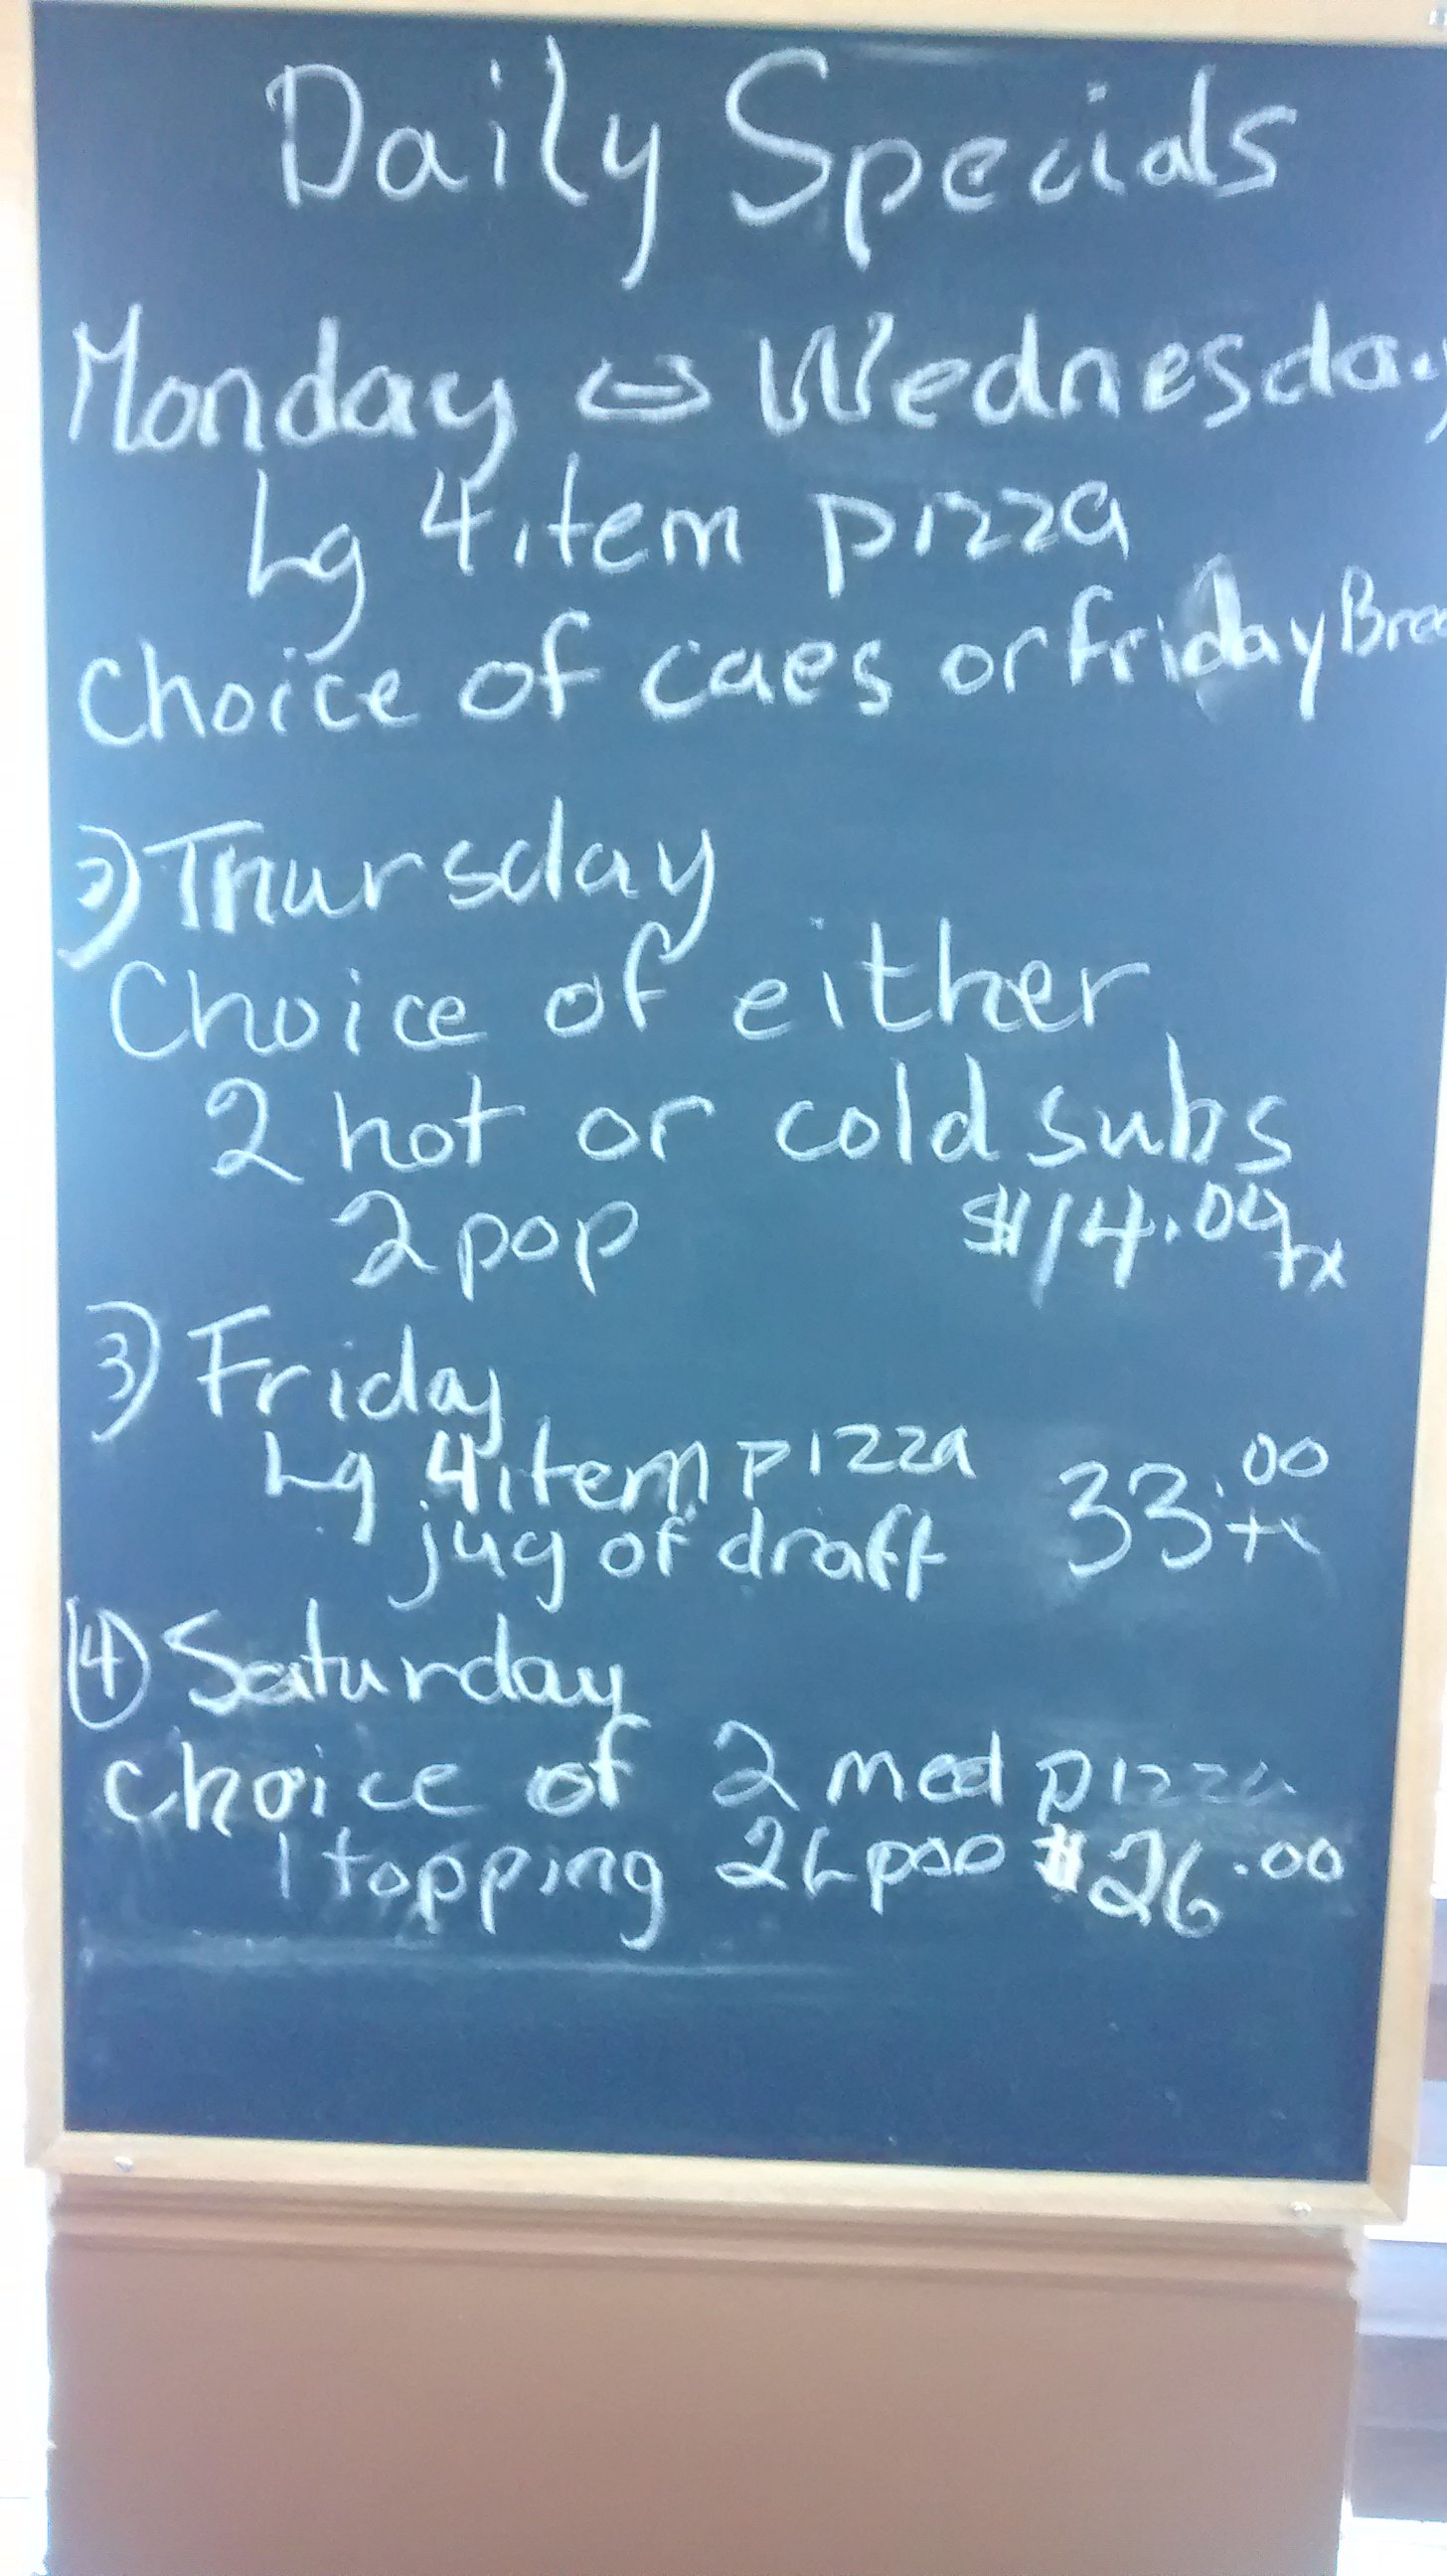 Daily Specials
Monday ⇔ Wednesday
Lg 4 item pizza
choice of caes or Friday Bree
2) Thursday
Choice of either
2 hot or cold subs
2 pop $14.09 tx
3) Friday
Lg 4 item pizza 33.00
jug of draft tx
4) Saturday
choice of 2 med pizza
1 topping 2L pop $26.00